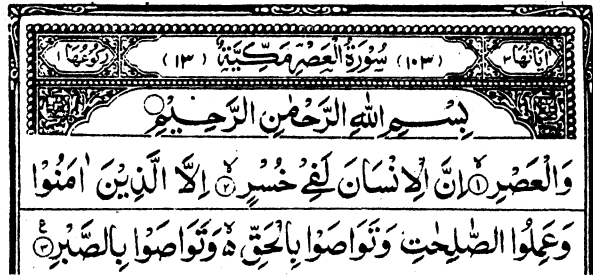 اٰيَاتُهَا ٣ (١٠٣) سُوْرَةُ الْعَصْرِ مَكِّيَّةٌ (١٣) رُكُوْعُهَا ١
بِسْمِ اللهِ الرَّحْمٰنِ الرَّحِيْمِ
وَالْعَصْرِ ۙ﴿١﴾ اِنَّ الْاِنْسَانَ لَفِيْ خُسْرٍ ۙ﴿٢﴾ اِلَّا الَّذِيْنَ اٰمَنُوْا
وَعَمِلُوا الصّٰلِحٰتِ وَتَوَاصَوْا بِالْحَقِّ ۙ۬ وَتَوَاصَوْا بِالصَّبْرِ ﴿٣﴾ ع